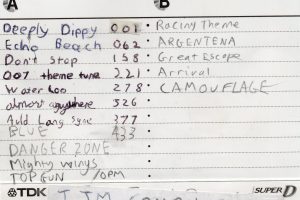 A
B
Deeply Dippy 001
Echo Beach 062
Don't Stop 158
007 theme tune 221
Water loo 278
almost anywhere 326
Auld Lang Syne 377
BLUE 433
DANGER ZONE
Mighty wings
TOP GUN /OPM
Racing Theme
ARGENTENA
Great Escape
Arrival
CAMOUFLAGE
TDK
SUPER D